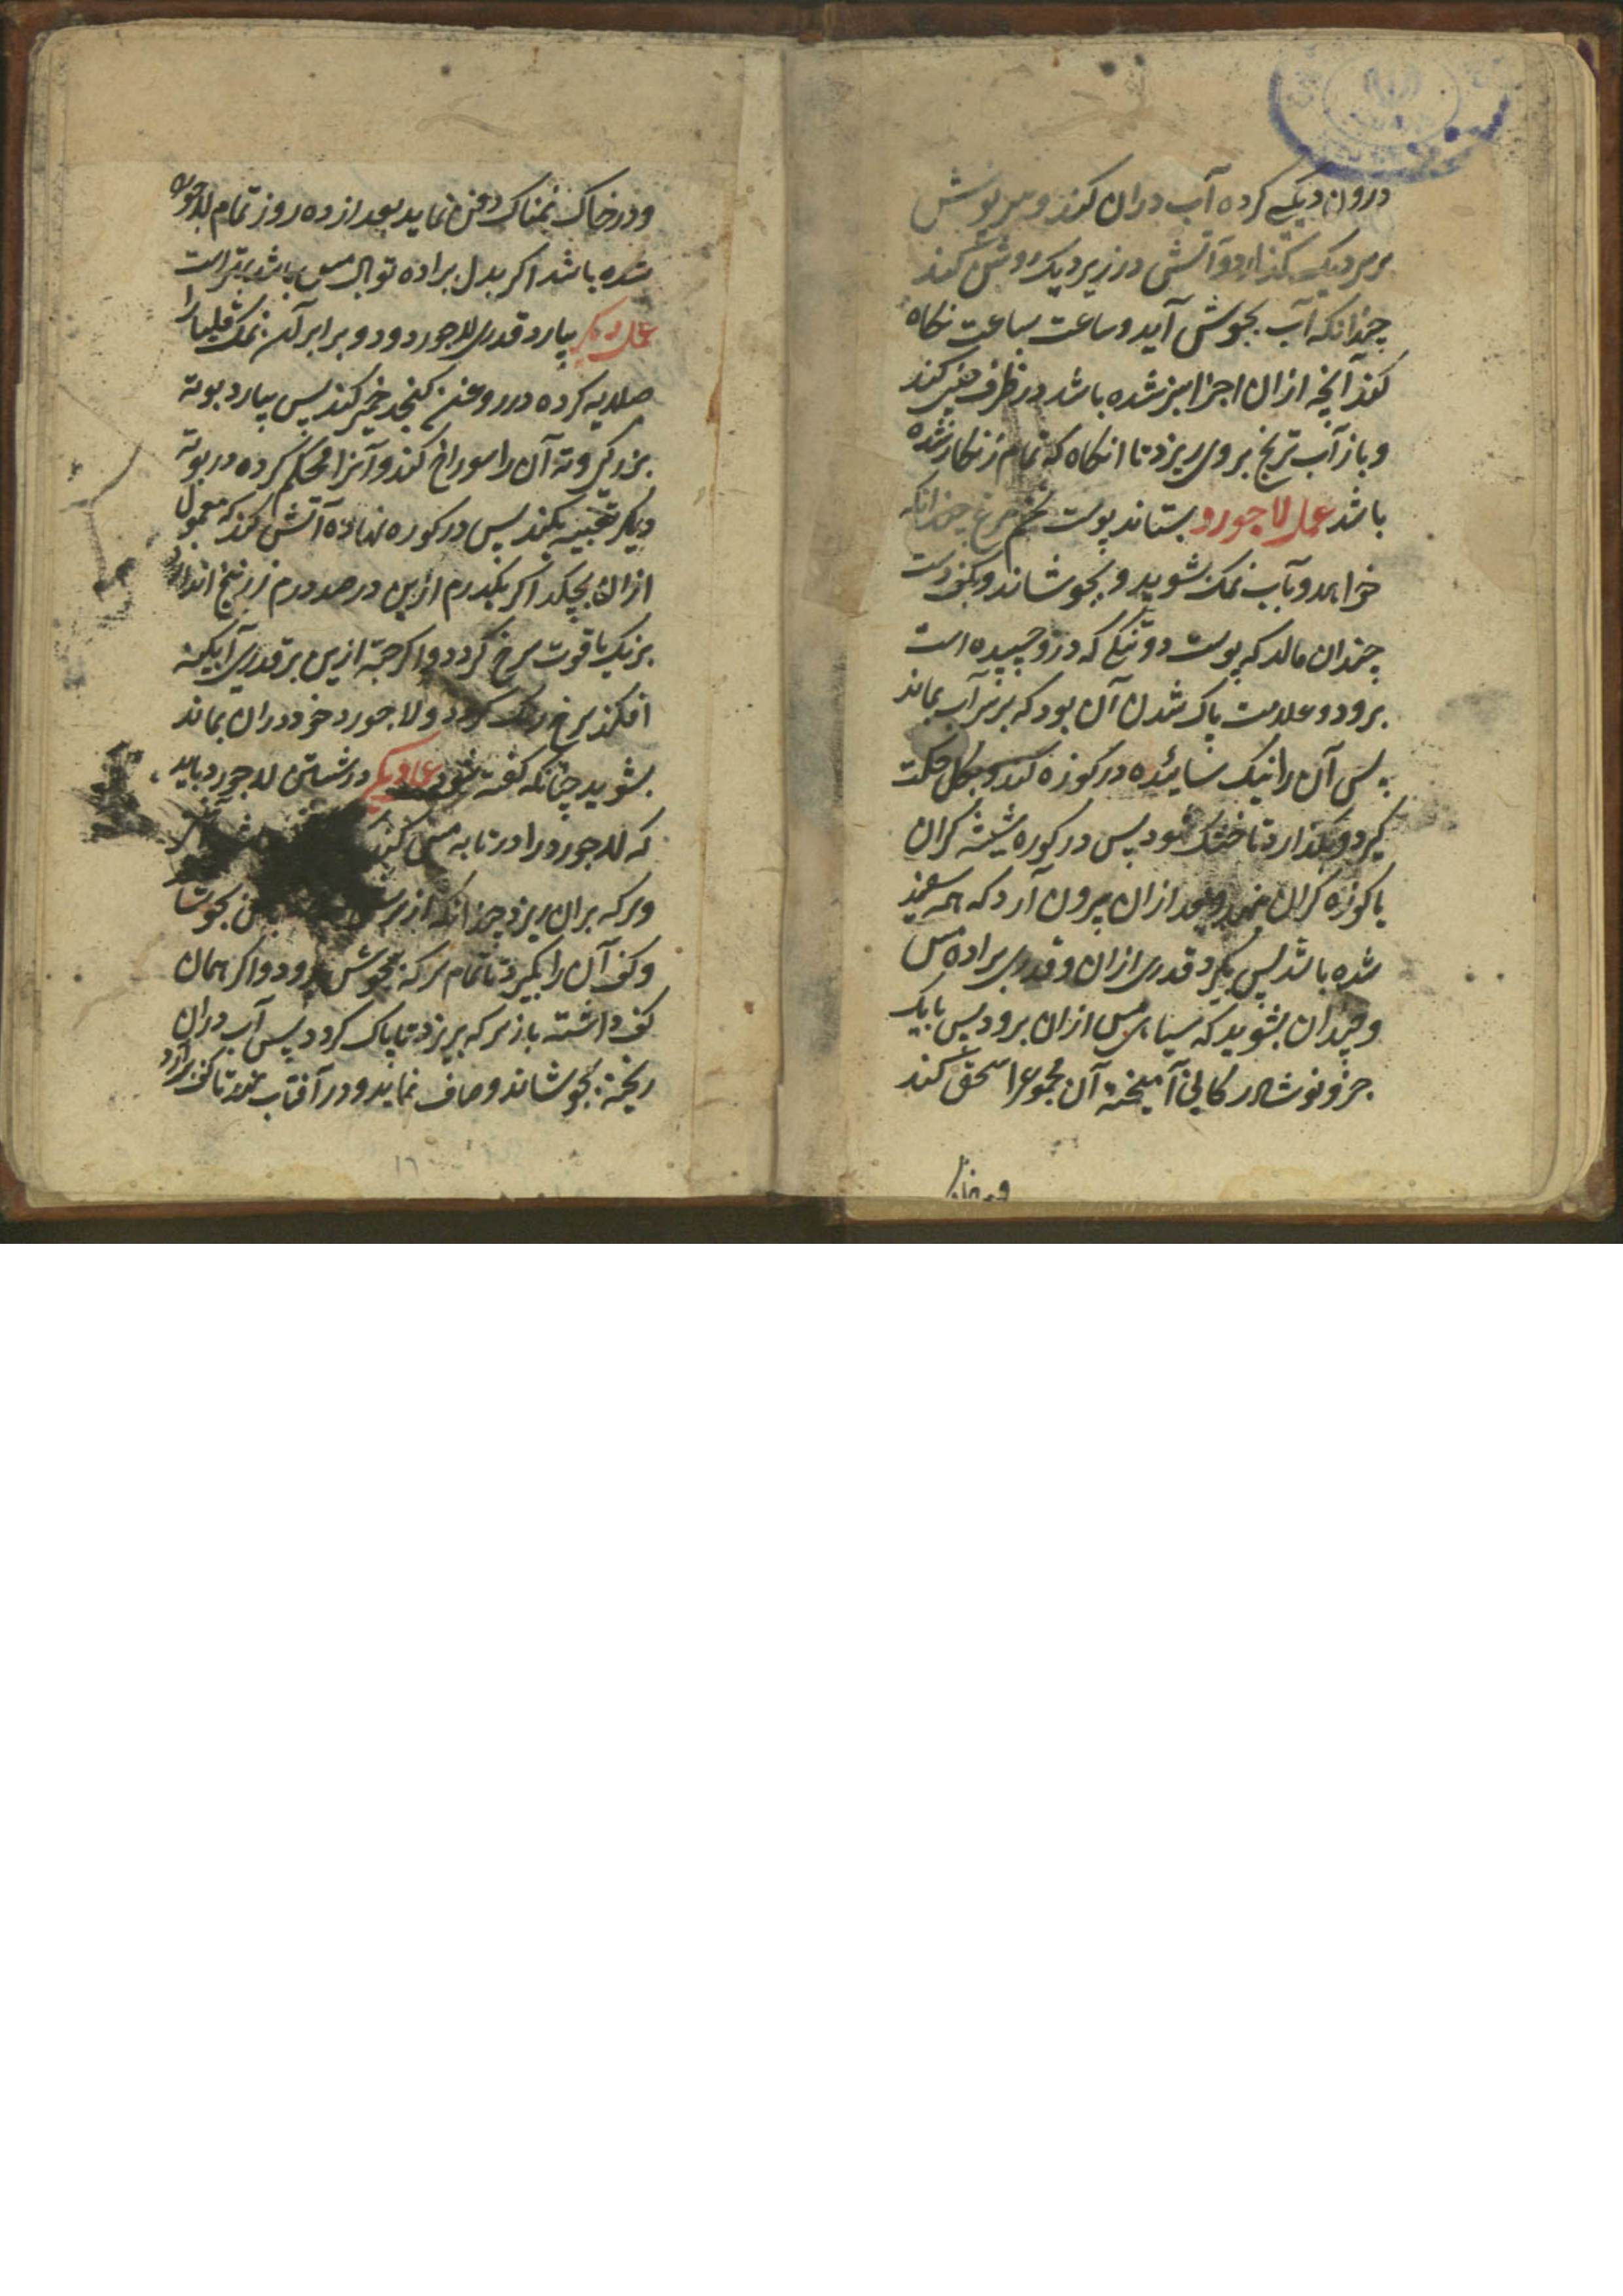 درون دیکی کرده آب دران کند و سرپوش
بر سر دیک کذارد و آتشی در زیر دیک روشن کند
چندانکه آب بجوش آید و ساعت بساعت نکاه
کند آنچه ازان اجزا سبز شده باشد در ظرف کند
و باز آب ترنج بروی ریزد تا انکاه که تمام زنکار شده
باشد عمل لاجورد بستاند پوست تخم مرغ چندانکه
خواهد و بآب نمک بشوید و بجوشاند و بکف دست
چندان مالد که پوست تنکی که درو چسپیده است
برود و علامت پاک شدن آن بود که بر سر آب بماند
پس آن را نیک سائیده در کوزه کند و بکل حکمت
کیرد و بکذارد تا خشک شود پس در کوره شیشه کران
یا کوزه کران نهد و بعد ازان بیرون آرد که همه سفید
شده باشد پس بکیرد قدری ازان و قدری براده مس
و چندان بشوید که سیاهی مس ازان برود پس با یک
جزو نوشادر کانی آمیخته آن مجموع را سحق کند
و در خاک نمناک دفن نماید بعد از ده روز تمام لاجورد
شده باشد اکر بدل براده توبال مس باشد بهتر است
عمل دیکر بیارد قدری لاجورد و دو برابر آن نمک قلیا را
صلایه کرده در روغن کنجد خمیر کند پس بیارد بوته
بزرک و ته آن را سوراخ کند و آنرا محکم کرده در بوته
دیکر تعبیه کند پس در کوره نهاده آتش کند که معمول
ازان بچکد اکر یکدرم ازین در صد درم زرنیخ اندازد
برنک یاقوت سرخ کردد و اکر حبه ازین بر قدری آبکینه
افکند سرخ رنک کردد و لاجورد خود دران بماند
بشوید چنانکه کفته شود عمل دیکر در شستن لاجورد باید
که لاجورد را در تابه مس کند
و سرکه بران ریزد چندانکه از سر بجوشا
و کف آن را بکیرد تا تمام سرکه بجوش برود و اکر همان
کف داشته باز سرکه بریزد تا پاک کردد پس آب دران
ریخته بجوشاند و صاف نماید و در آفتاب نهد تا کف برآرد
و در خاک